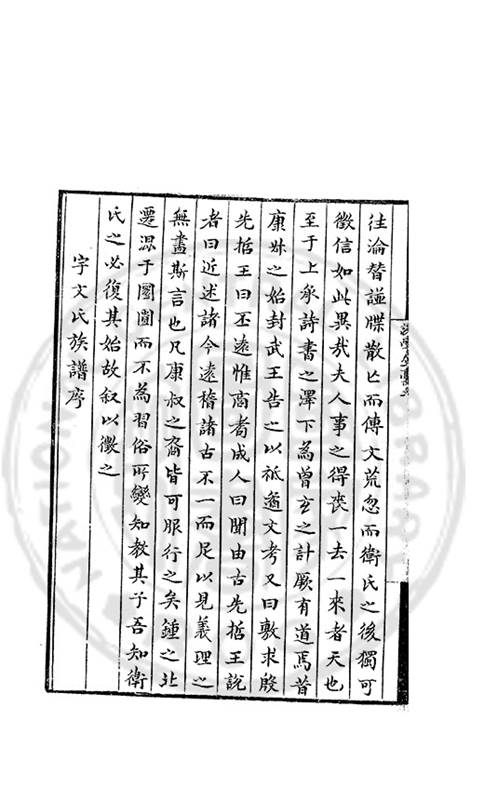 往淪替譜牒散亡而傳文荒忽而衛氏之後獨可
徵信如此異哉夫人事之得喪一去一來者天也
至于上承詩書之澤下為曽玄之計厥有道焉昔
康叔之始封武王告之以祗遹文考又曰敷求殷
先哲王曰丕遠惟商耉成人曰聞由古先哲王說
者曰近述諸今遠稽諸古不一而足以見義理之
無盡斯言也凡康叔之裔皆可服行之矣鍾之北
遷混于圜闠而不為習俗所變知教其子吾知衛
氏之必復其始故叙以徵之
宇文氏族譜序